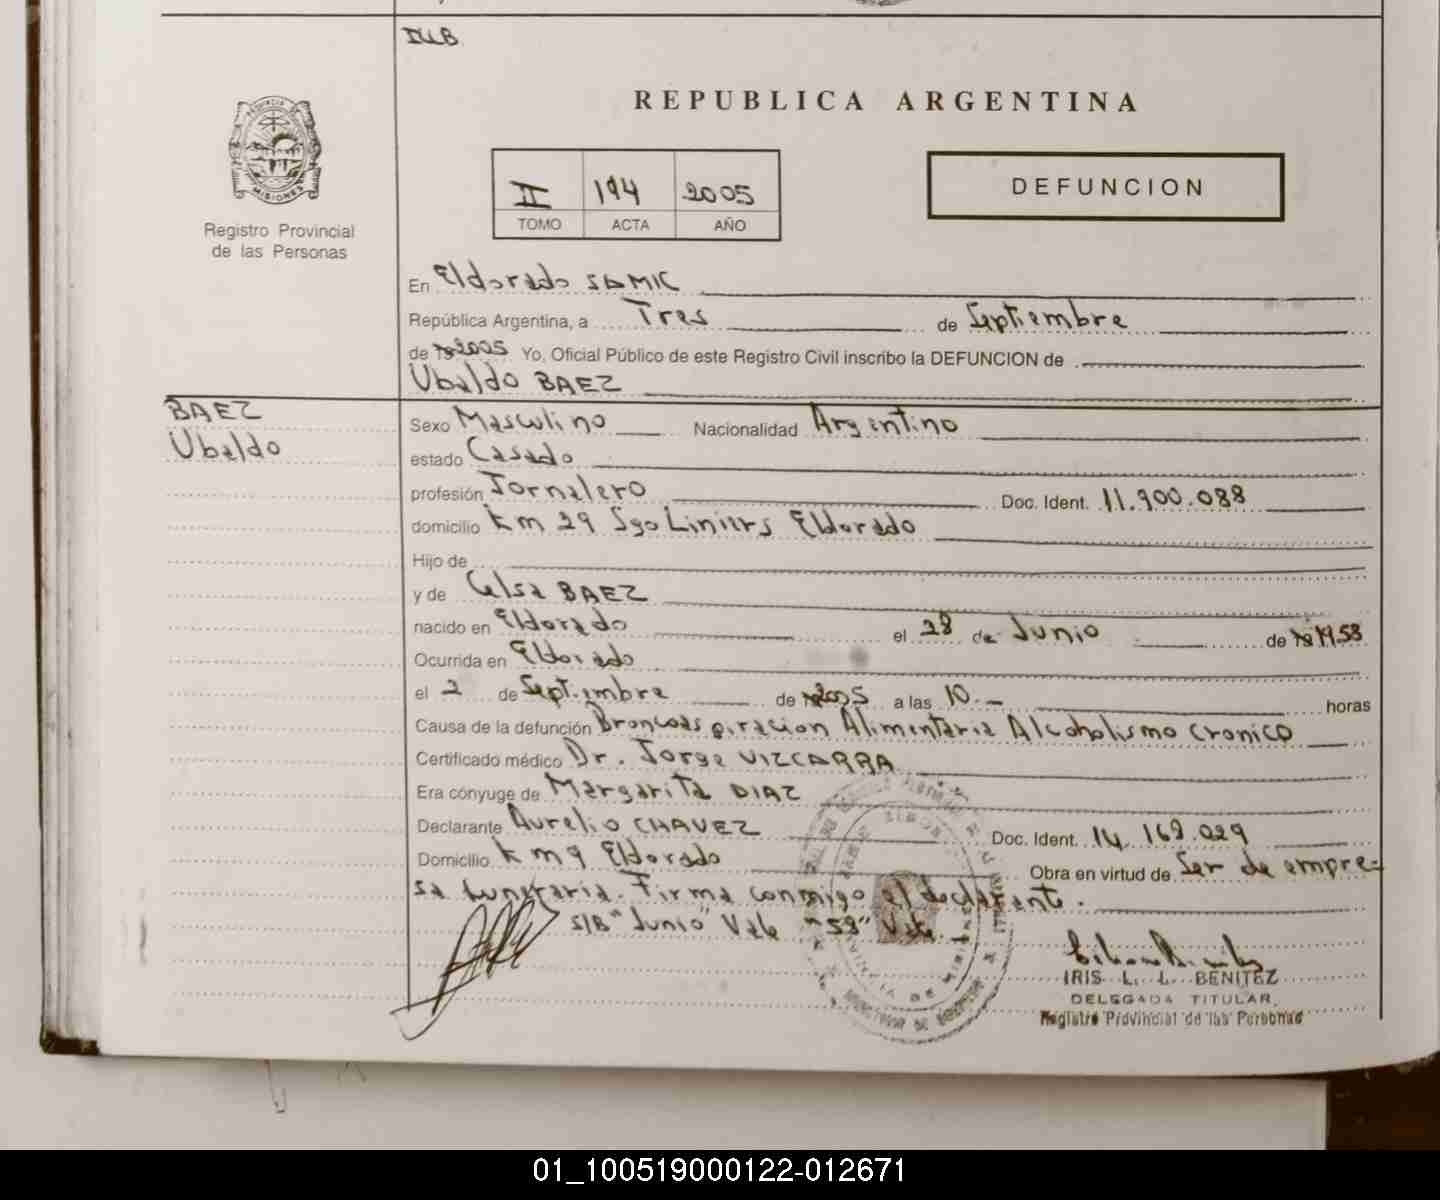 REPUBLICA ARGENTINA
PROVINCIA DE
MISIONES
Registro Provincial
de las Personas
II 194 2005
TOMO ACTA AÑO
DEFUNCION
En Eldorado SAMIC
República Argentina, a Tres de Septiembre
de 2005 Yo, Oficial Público de este Registro Civil inscribo la DEFUNCION de
Ubaldo BAEZ
BAEZ
Ubaldo
Sexo Masculino Nacionalidad Argentino
estado Casado
profesión Jornalero Doc. Ident. 11.900.088
domicilio Km 29 Sgo Liniers Eldorado
Hijo de
y de Celsa BAEZ
nacido en Eldorado el 28 de Junio de 1958
Ocurrida en Eldorado
el 2 de Septiembre de 2005 a las 10.- horas
Causa de la defunción Broncoaspiracion Alimentaria Alcoholismo Cronico
Certificado médico Dr. Jorge VIZCARRA
Era cónyuge de Margarita DIAZ
Declarante Aurelio CHAVEZ Doc. Ident. 14.169.029
Domicilio Km 9 Eldorado Obra en virtud de Ser de empre-
sa funeraria. Firma conmigo el declarante.
S/B "Junio" Vale "58" Vale
IRIS L. L. BENITEZ
DELEGADA TITULAR
Registro Provincial de las Personas
01_100519000122-012671